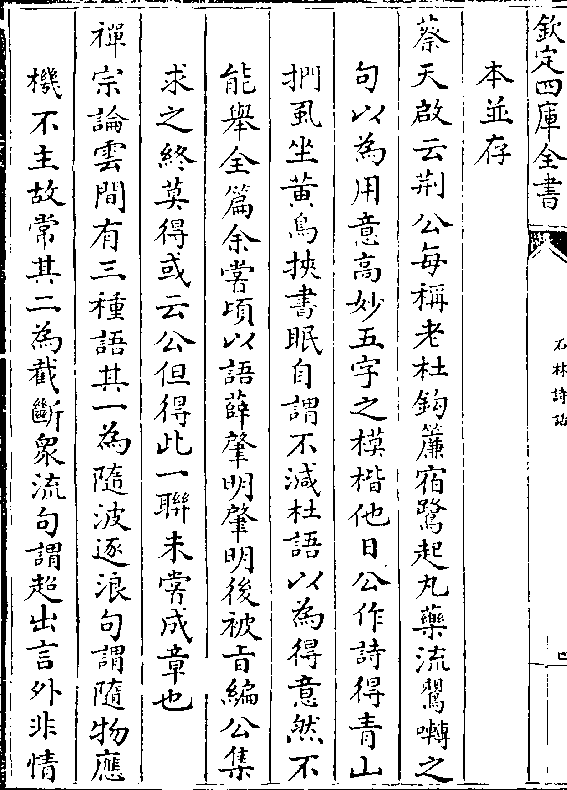 欽定四庫全書
石林詩話
四
本並存
蔡天啟云荆公每稱老杜鈎簾宿鷺起丸藥流鶯囀之
句以為用意高妙五字之模楷他日公作詩得青山
捫虱坐黄鳥挾書眠自謂不減杜語以為得意然不
能舉全篇余嘗頃以語薛肇明肇明後被旨編公集
求之終莫得或云公但得此一聯未嘗成章也
禪宗論雲間有三種語其一為隨波逐浪句謂隨物應
機不主故常其二為截斷衆流句謂超出言外非情